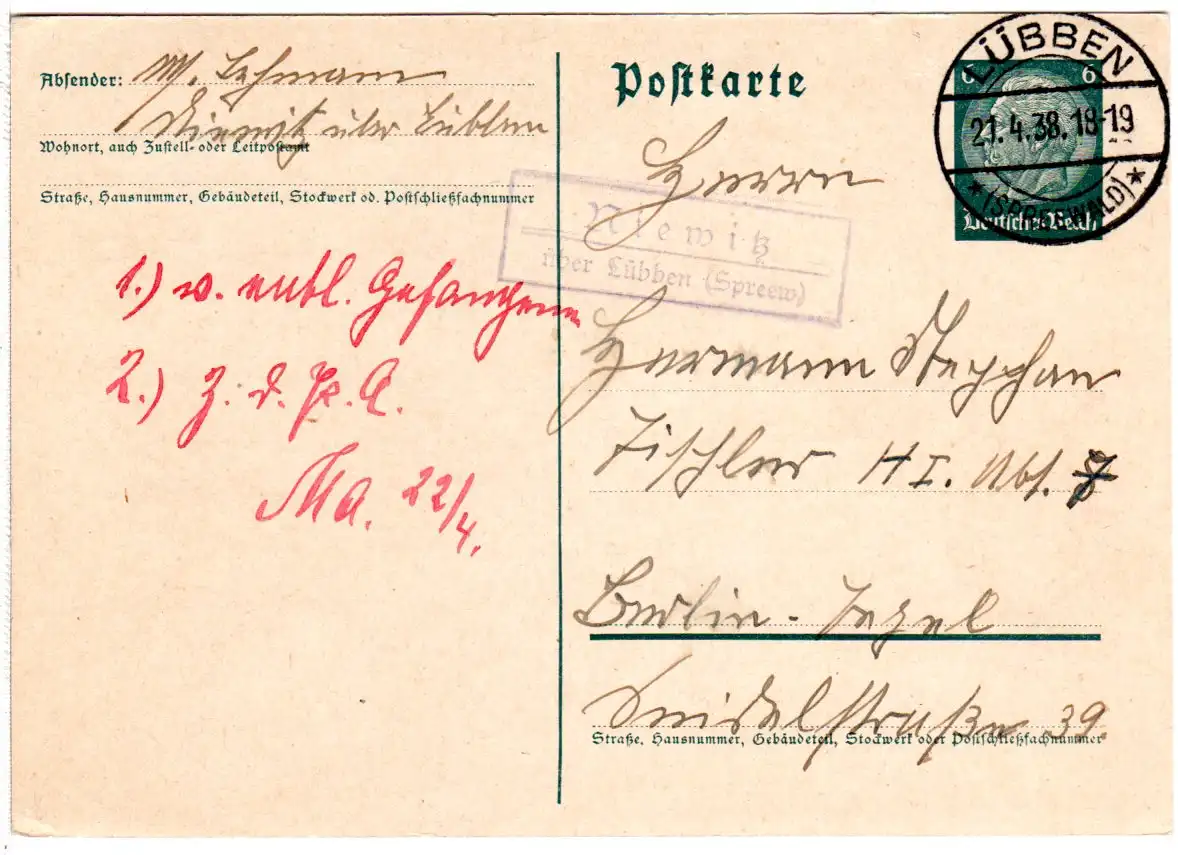 Absender: W. Lehmann
Niewitz über Lübben
Wohnort, auch Zustell- oder Leitpostamt
Straße, Hausnummer, Gebäudeteil, Stockwerk od. Postschließfachnummer
Postkarte
6 6
Deutsches Reich
LÜBBEN
21.4.38.18-19
(SPREEWALD)
Niewitz
über Lübben (Spreew)
1.) v. entl. Gefangenen
2.) Z. d. P. A.
Ma. 22/4.
Herrn
Hermann Stepphan
Tischler H I. Abt. 7
Berlin-Tegel
Seidelstraße 39.
Straße, Hausnummer, Gebäudeteil, Stockwerk oder Postschließfachnummer